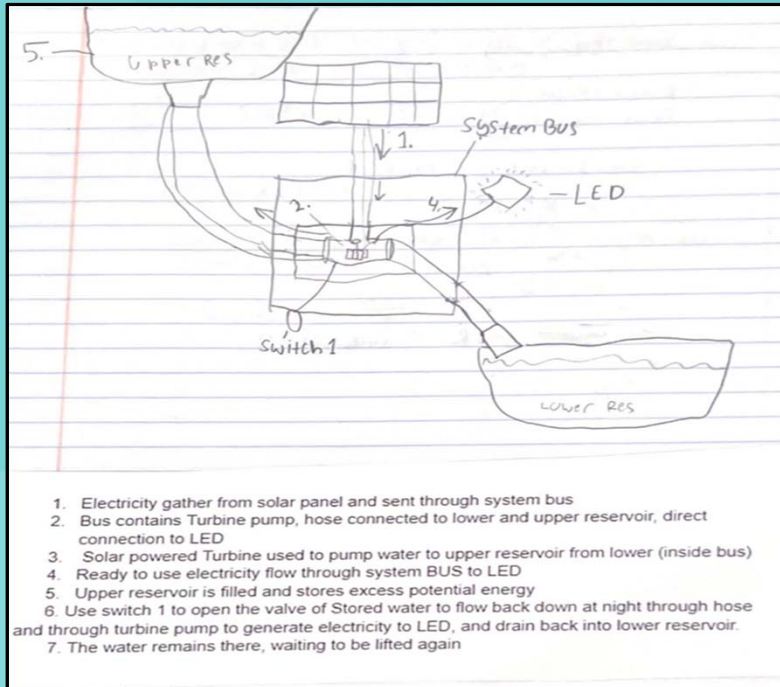 5.
Upper Res
System Bus
1.
LED
2.
4.
Switch 1
Lower Res
1. Electricity gather from solar panel and sent through system bus
2. Bus contains Turbine pump, hose connected to lower and upper reservoir, direct
connection to LED
3. Solar powered Turbine used to pump water to upper reservoir from lower (inside bus)
4. Ready to use electricity flow through system BUS to LED
5. Upper reservoir is filled and stores excess potential energy
6. Use switch 1 to open the valve of Stored water to flow back down at night through hose
and through turbine pump to generate electricity to LED, and drain back into lower reservoir.
7. The water remains there, waiting to be lifted again